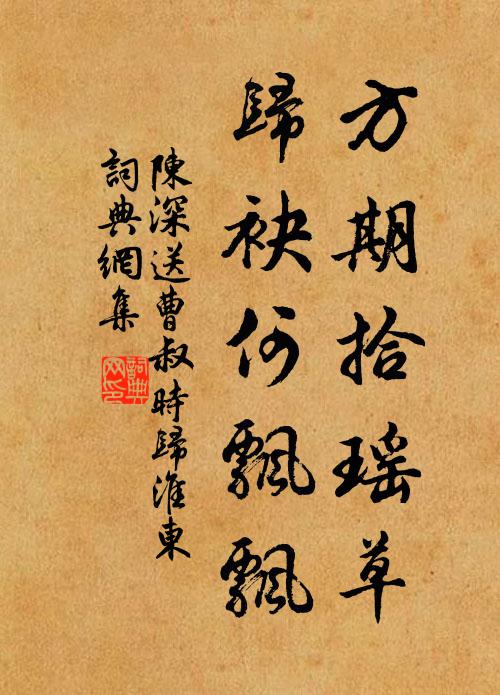 方期拾瑶草
歸袂何飄飄
陳深送曹叔時歸淮東
詞典網集
詞典網印